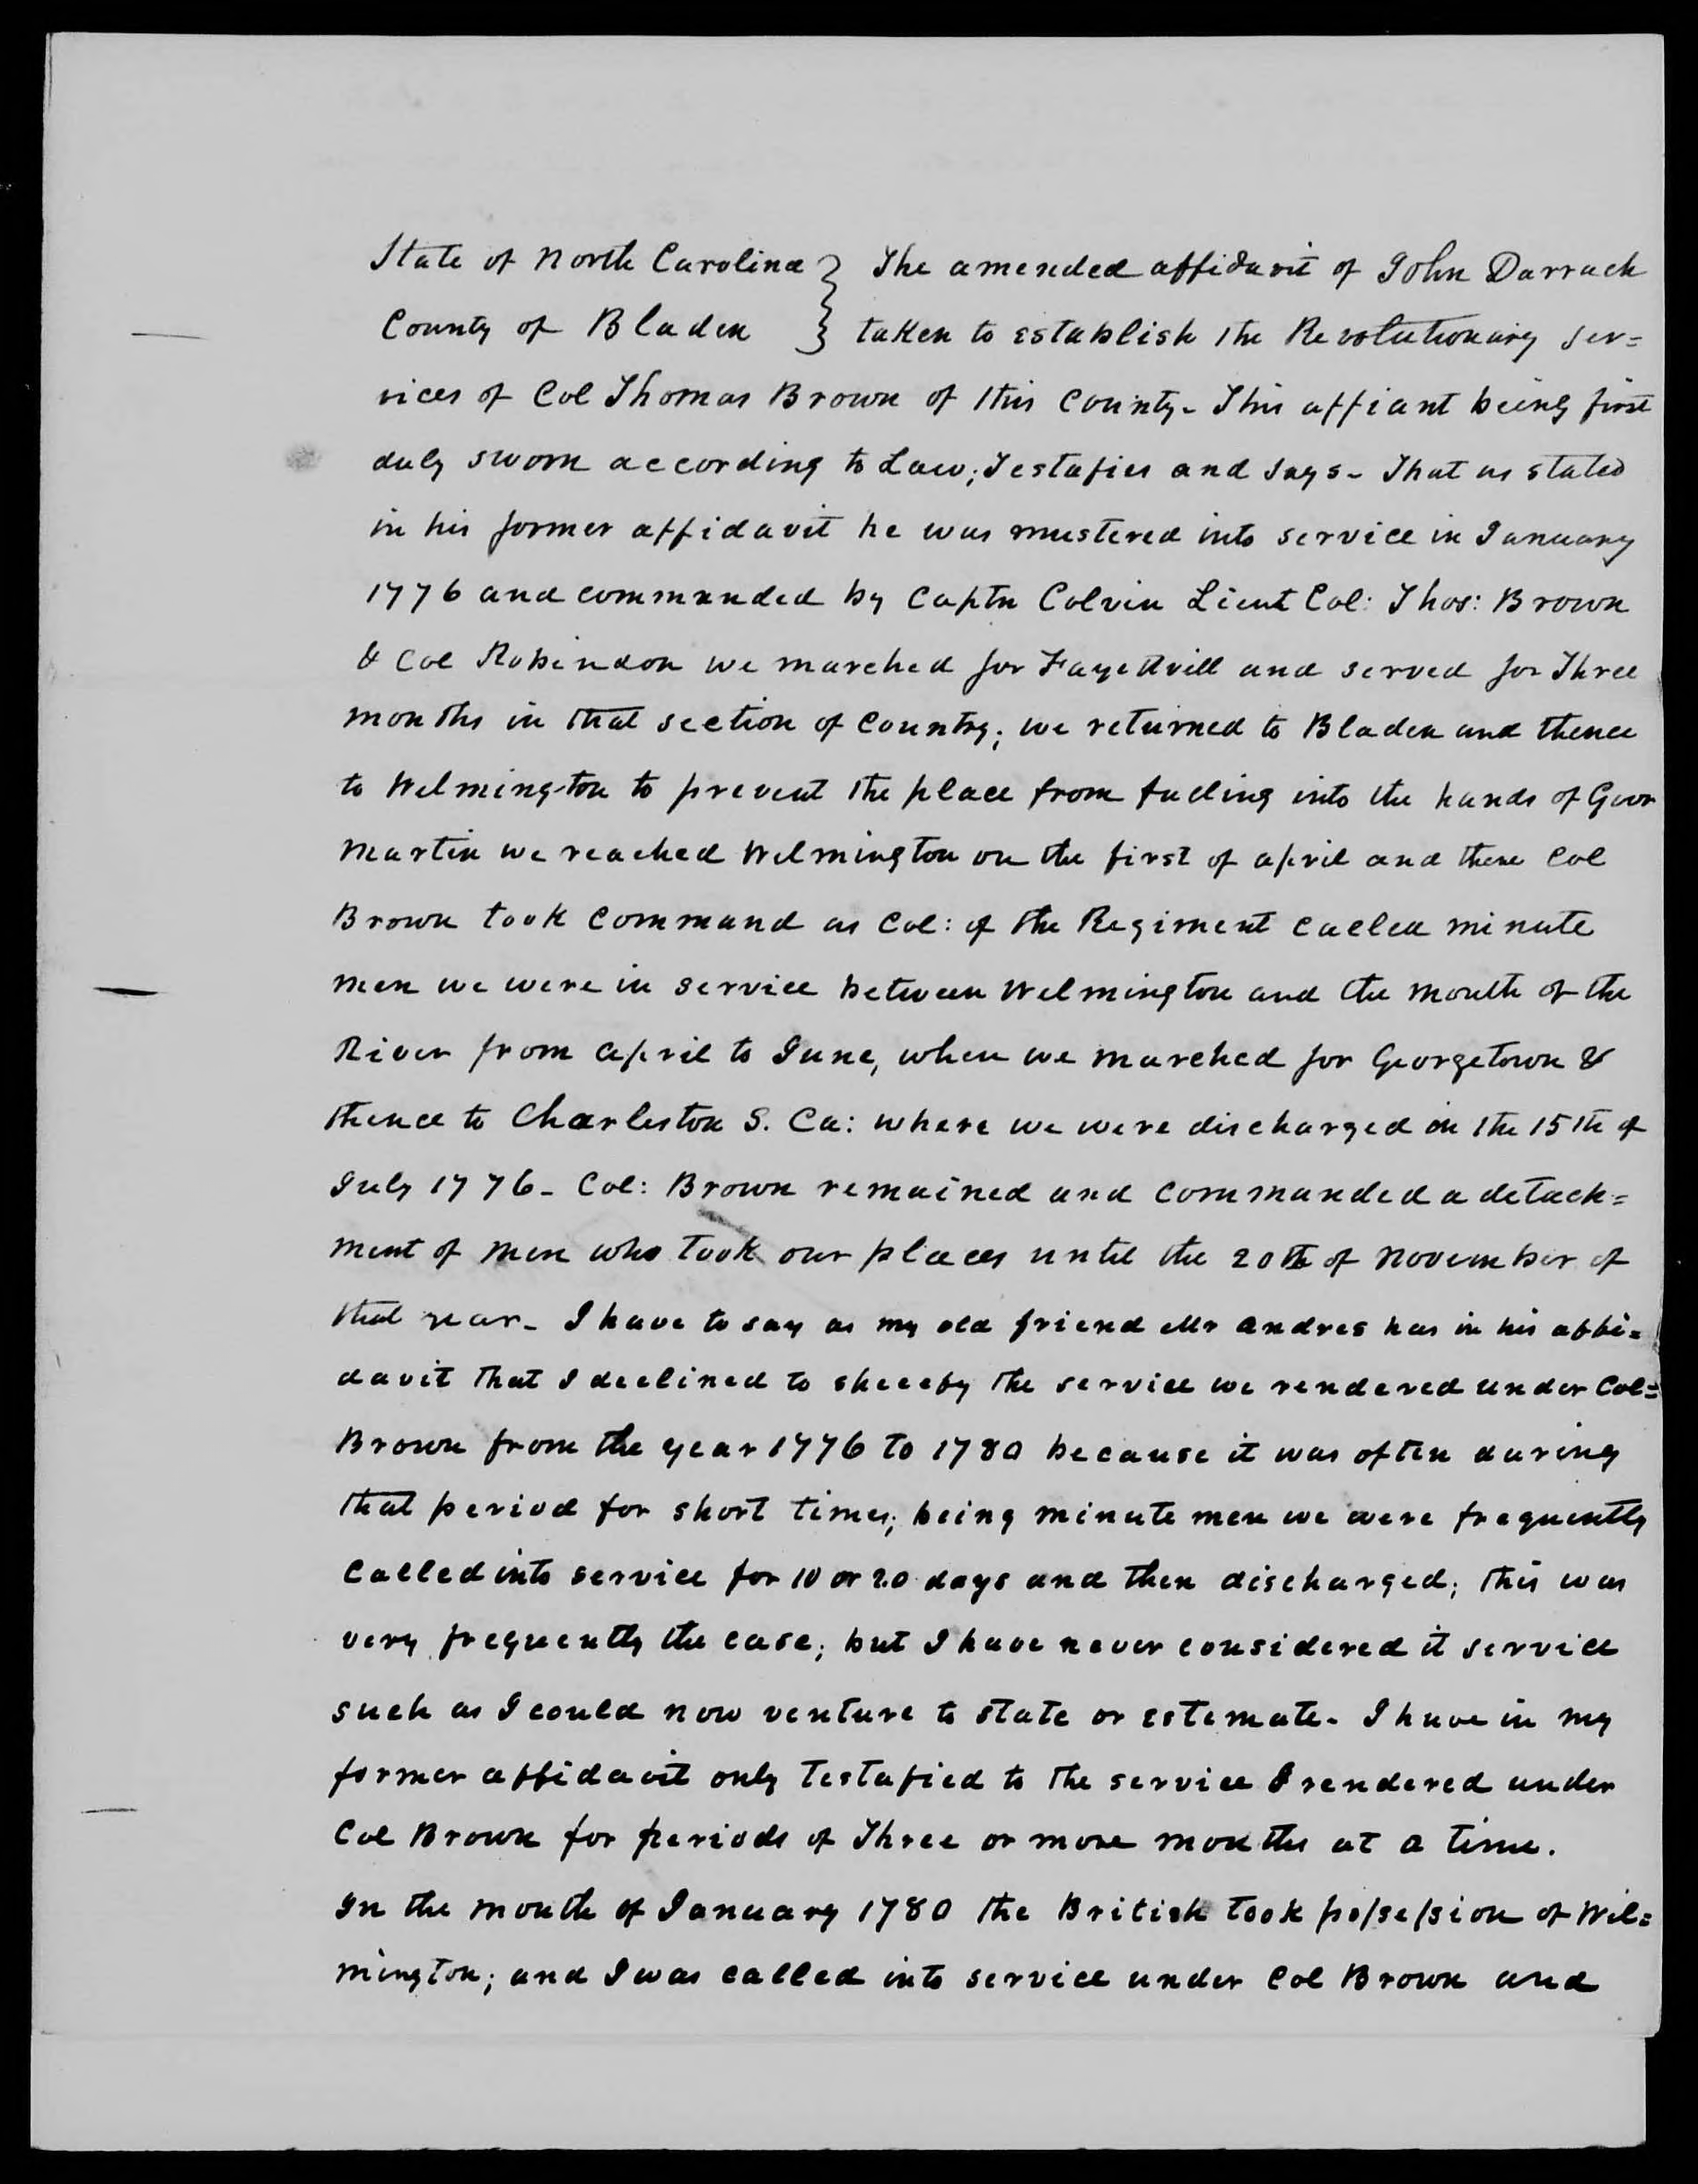 State of North Carolina } The amended affidavit of John Darrach
County of Bladen } taken to establish the Revolutionary ser=
vices of Col Thomas Brown of this County- This affiant being first
duly sworn according to Law; Testafies and says- That as stated
in his former affidavit he was mustered into service in January
1776 and commanded by Captn Colvin Lieut Col: Thos: Brown
& Col Robindon we marched for Fayettvill and served for Three
months in that section of Country; we returned to Bladen and thence
to Wilmington to prevent the place from falling into the hands of Govr
Martin we reached Wilmington on the first of april and there Col
Brown took command as Col: of the Regiment called minute
men we were in service between Wilmington and the mouth of the
River from april to June, when we marched for Georgetown &
thence to Charleston S. Ca: where we were discharged on the 15th of
July 1776- Col: Brown remained and commanded a detach=
ment of men who took our places until the 20th of November of
that year- I have to say as my old friend Mr Andres has in his affi=
davit that I declined to the service we rendered under Col=
Brown from the year 1776 to 1780 because it was often during
that period for short times; being minute men we were frequently
called into service for 10 or 20 days and then discharged; this was
very frequently the case; but I have never considered it service
such as I could now venture to state or estemate- I have in my
former affidavit only testafied to the service I rendered under
Col Brown for periods of Three or more months at a time.
In the month of January 1780 the British took possession of Wil=
mington; and I was called into service under Col Brown and